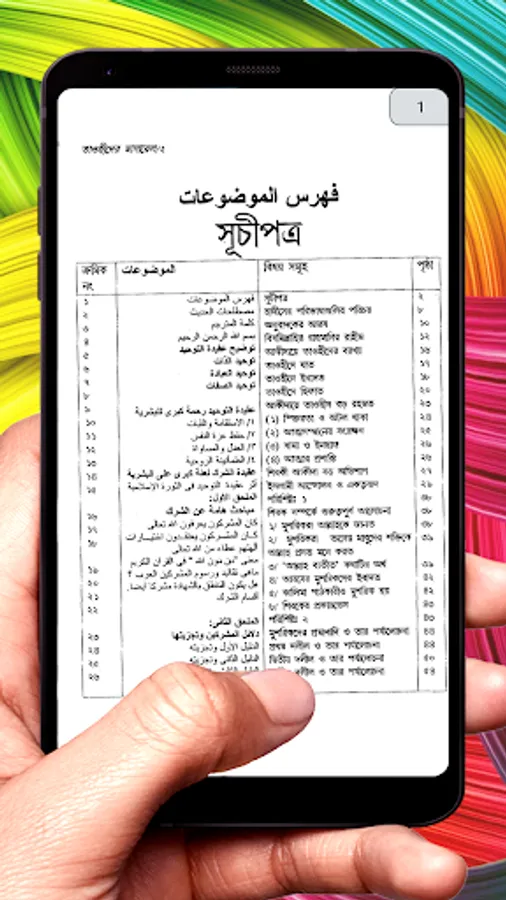 1
তাওহীদের মাসায়েল/২
فهرس الموضوعات
সূচীপত্র
ক্রমিক নং الموضوعات বিষয় সমূহ পৃষ্ঠা
১ فهرس الموضوعات সূচীপত্র ২
২ مصطلحات الحديث হাদীসের পরিভাষাগুলির পরিচয় ৮
৩ كلمة المترجم অনুবাদকের আরয ১০
৪ بسم الله الرحمن الرحيم বিসমিল্লাহির রাহমানির রাহীম ১২
৫ توضيح عقيدة التوحيد আকীদায়ে তাওহীদের ব্যাখ্যা ১৬
৬ توحيد الذات তাওহীদে যাত ১৭
৭ توحيد العبادة তাওহীদে ইবাদত ১৮
৮ توحيد الصفات তাওহীদে ছিফাত ২০
৯ عقيدة التوحيد رحمة كبرى للبشرية আকীদায়ে তাওহীদ বড় রহমত ২৩
১০ ١/ الاستقامة والثبات (১) স্থিরতা ও অটল থাকা ২৪
১১ ٢/ حفظ عزة النفس (২) আত্মসম্মানের সংরক্ষণ ২৫
১২ ٣/ العدل والمساواة (৩) সাম্য ও ইনছাফ ২৬
১৩ ٤/ الطمأنينة الروحية (৪) আত্মার প্রশান্তি ২৬
১৪ عقيدة الشرك لعنة كبرى على البشرية শিরকী আকীদা বড় অভিশাপ ২৭
১৫ أثر عقيدة التوحيد في الثورة الإسلامية ইসলামী আন্দোলন ও একত্ববাদ ২৯
الملحق الأول: পরিশিষ্টঃ ১ ৩৮
১৬ مباحث هامة عن الشرك শিরক সম্পর্কে গুরুত্বপূর্ণ আলোচনা ৩৮
১৭ كان المشركون يعرفون الله تعالى ১/ মুশরিকরা আল্লাহকে জানত ৩৮
১৮ كان المشركون يعتقدون اختيارات ২/ মুশরিকরা তাদের মা'বুদের শক্তিকে ৩৯
آلهتهم عطاء من الله تعالى আল্লাহ প্রদত্ত মনে করত
১৯ معنى "من دون الله" في القرآن الكريم ৩/ "আল্লাহ ব্যতীত" কথাটির অর্থ ৩৯
২০ ماهي تقاليد ورسوم المشركين العرب ؟ ৪/ আরবের মুশরিকদের ইবাদত ৪২
২১ هل يكون المنطق بالشهادة مشركا أيضا. ৫/ কালিমা পাঠকারীও মুশরিক হয় ৪২
২২ أقسام الشرك ৬/ শিরকের প্রকারভেদ ৪৩
الملحق الثاني: পরিশিষ্টঃ ২ ৪৩
২৩ دلائل المشركين وتجزيتها মুশরিকদের প্রমাণাদি ও তার পর্যালোচনা ৪৪
২৪ الدليل الأول وتجزيته প্রথম দলীল ও তার পর্যালোচনা ৪৪
২৫ الدليل الثاني وتجزيته দ্বিতীয় দলীল ও তার পর্যালোচনা ৫০
২৬ দলীল ও তার পর্যালোচনা ৫৪